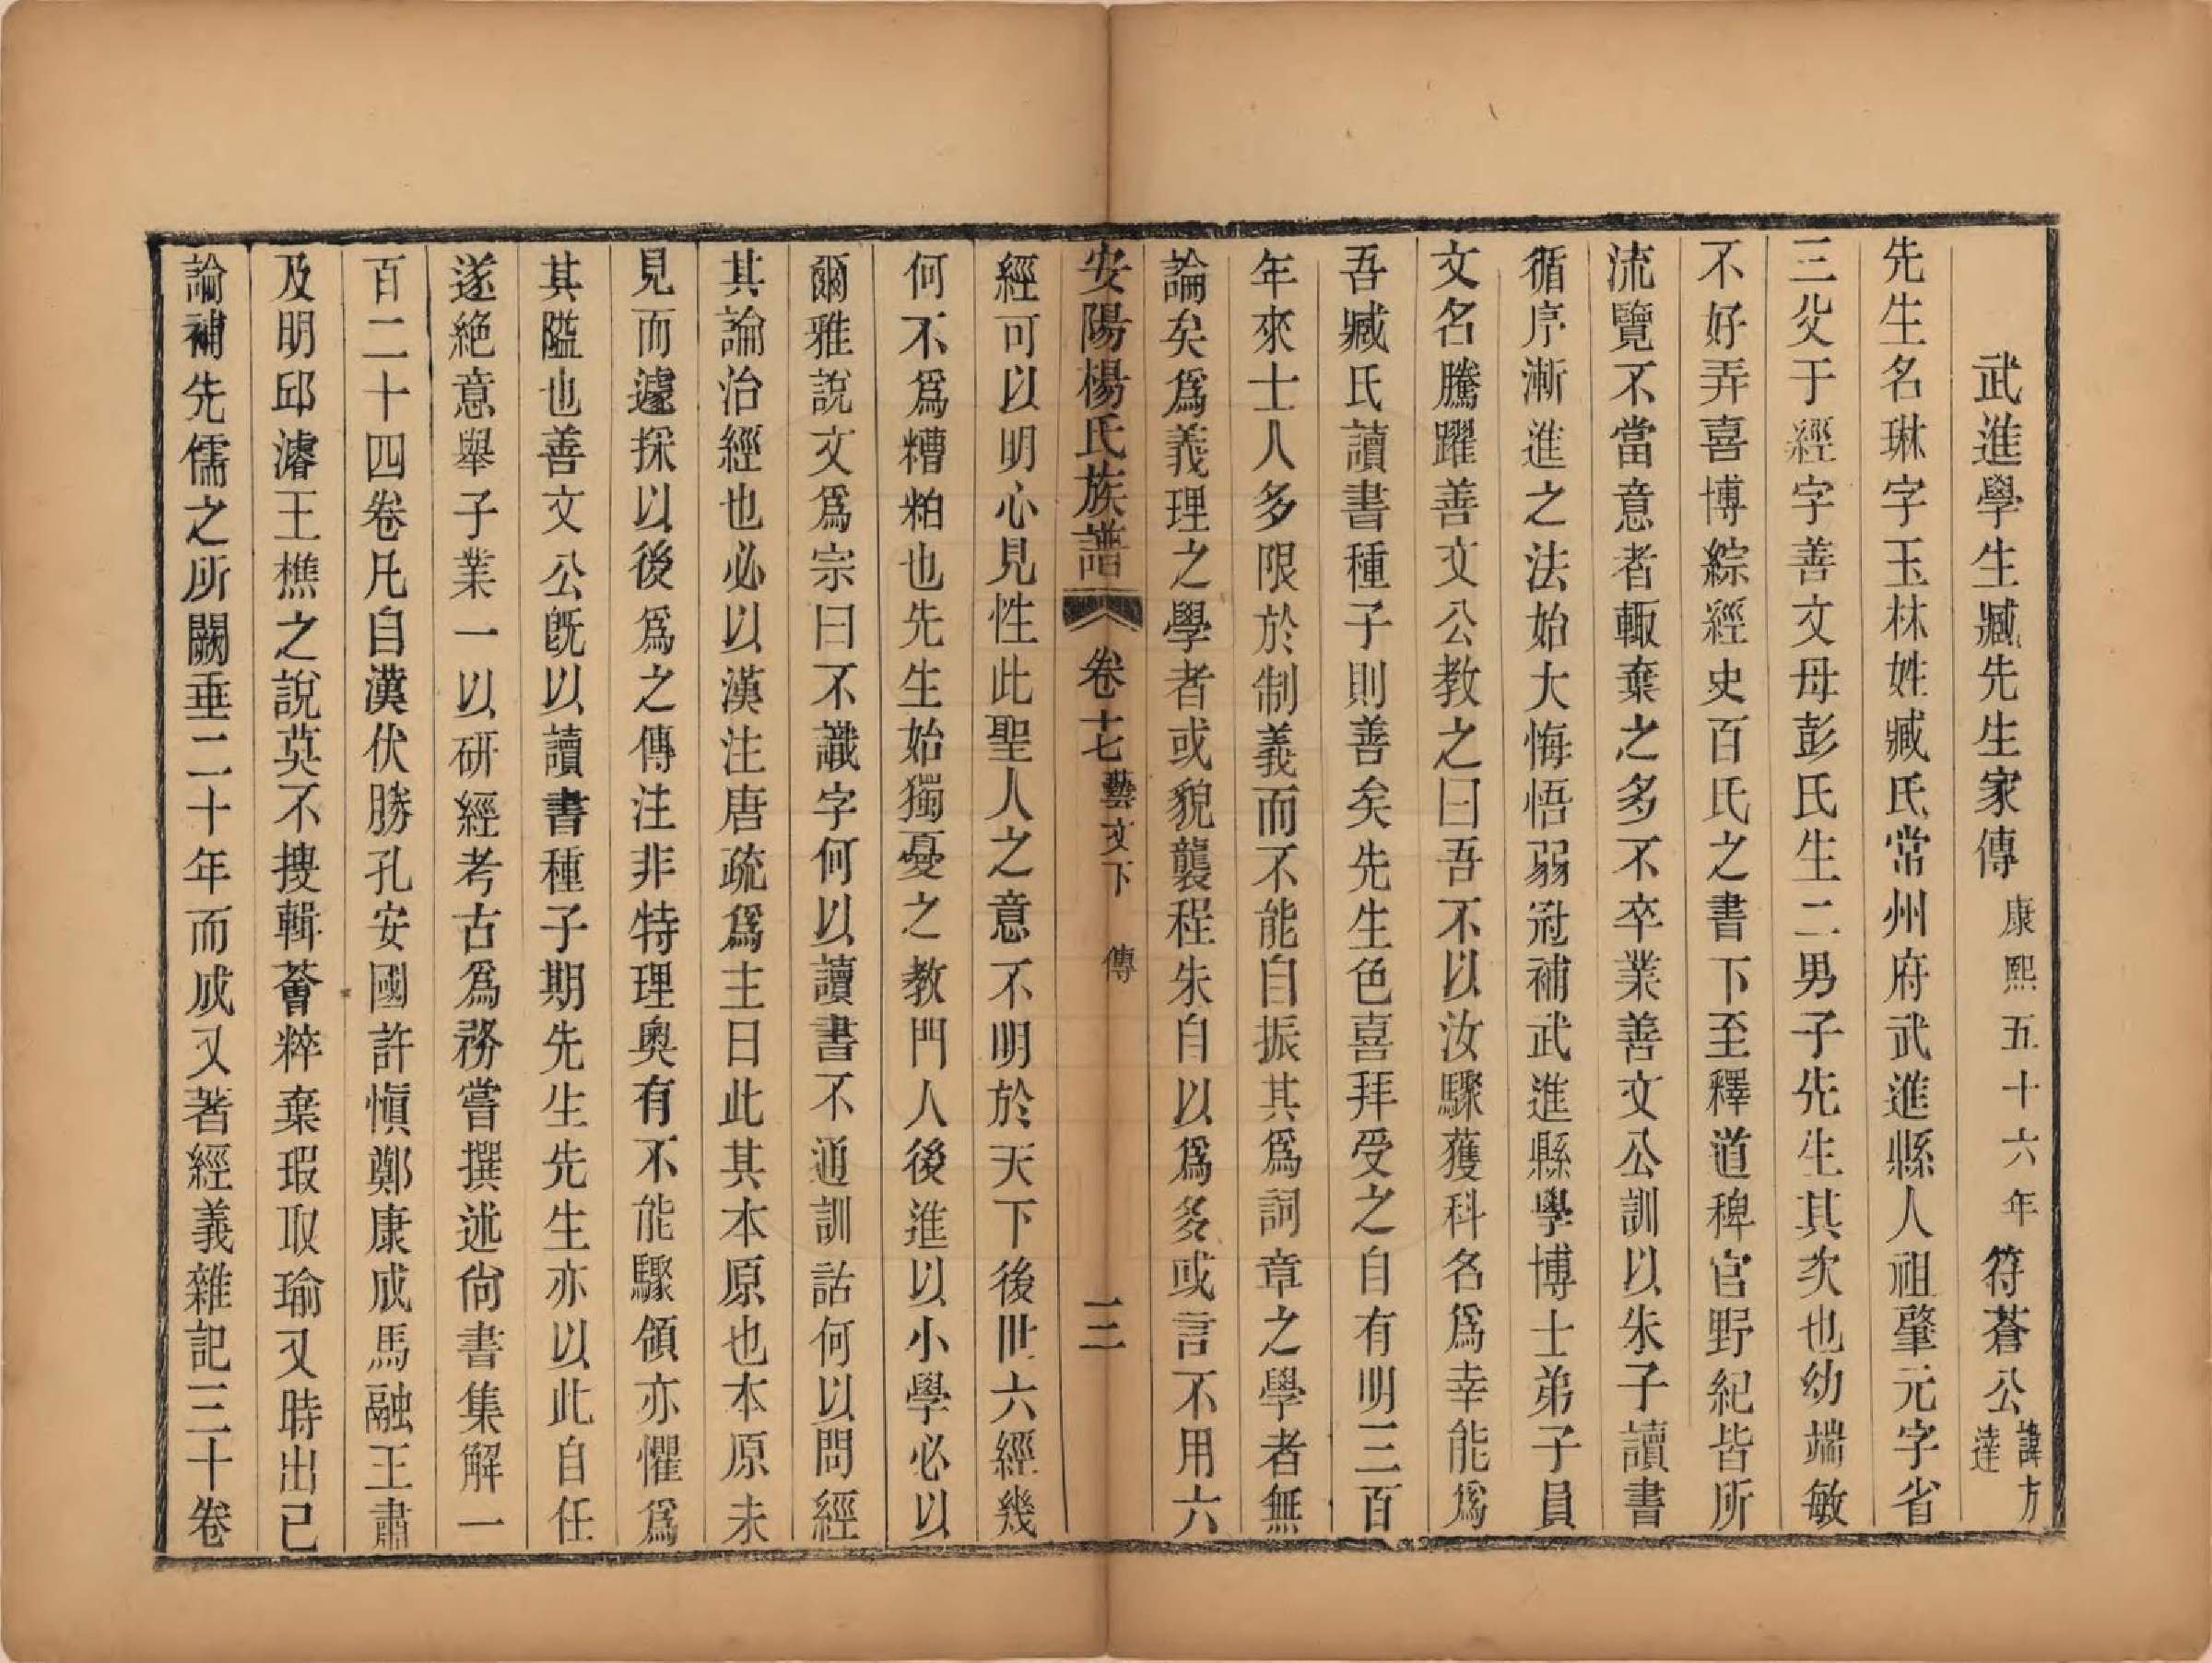 武進學生臧先生家傳 康熙五十六年 符蒼公 諱方達
先生名琳字玉林姓臧氏常州府武進縣人祖肇元字省
三父于經字善文母彭氏生二男子先生其次也幼端敏
不好弄喜博綜經史百氏之書下至釋道稗官野紀皆所
流覽不當意者輒棄之多不卒業善文公訓以朱子讀書
循序漸進之法始大悔悟弱冠補武進縣學博士弟子員
文名騰躍善文公教之曰吾不以汝驟獲科名爲幸能爲
吾臧氏讀書種子則善矣先生色喜拜受之自有明三百
年來士人多限於制義而不能自振其爲詞章之學者無
論矣爲義理之學者或貌襲程朱自以爲多或言不用六
安陽楊氏族譜 卷十七 藝文下 傳 三
經可以明心見性此聖人之意不明於天下後世六經幾
何不爲糟粕也先生始獨憂之教門人後進以小學必以
爾雅說文爲宗曰不識字何以讀書不通訓詁何以問經
其論治經也必以漢注唐疏爲主曰此其本原也本原未
見而遽探以後爲之傳注非特理奧有不能驟領亦懼爲
其隘也善文公既以讀書種子期先生先生亦以此自任
遂絕意舉子業一以研經考古爲務嘗撰述尙書集解一
百二十四卷凡自漢伏勝孔安國許慎鄭康成馬融王肅
及明邱濬王樵之說莫不搜輯薈粹棄瑕取瑜又時出己
論補先儒之所闕垂二十年而成又著經義雜記三十卷